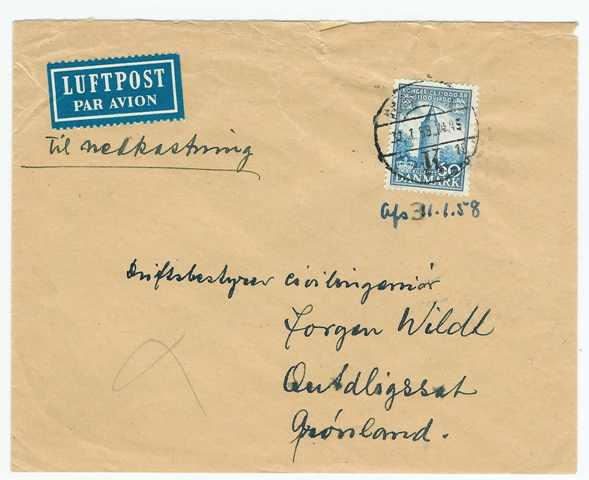 LUFTPOST
PAR AVION
Til nedkastning
KONGERIGE I 1000 ÅR
60
DANMARK
Afs 31.1.58
Driftsbestyrer civilingeniør
Jørgen Wildt
Qutdligssat
Grønland.